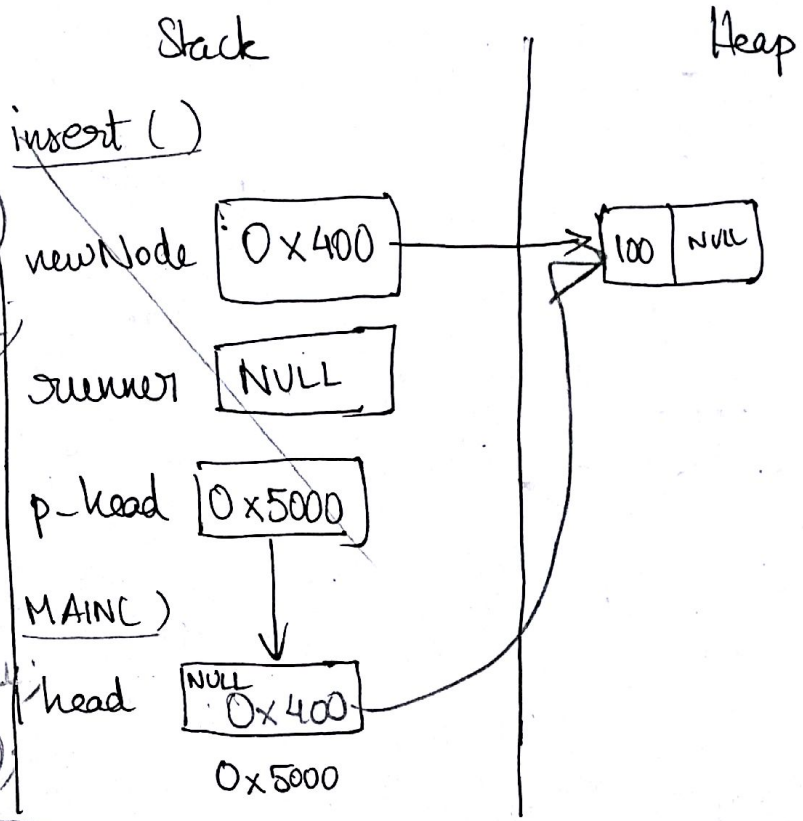 Stack Heap
insert ( )
newNode 0x400 100 NULL
runner NULL
p-head 0x5000
MAIN( )
head NULL 0x400
0x5000